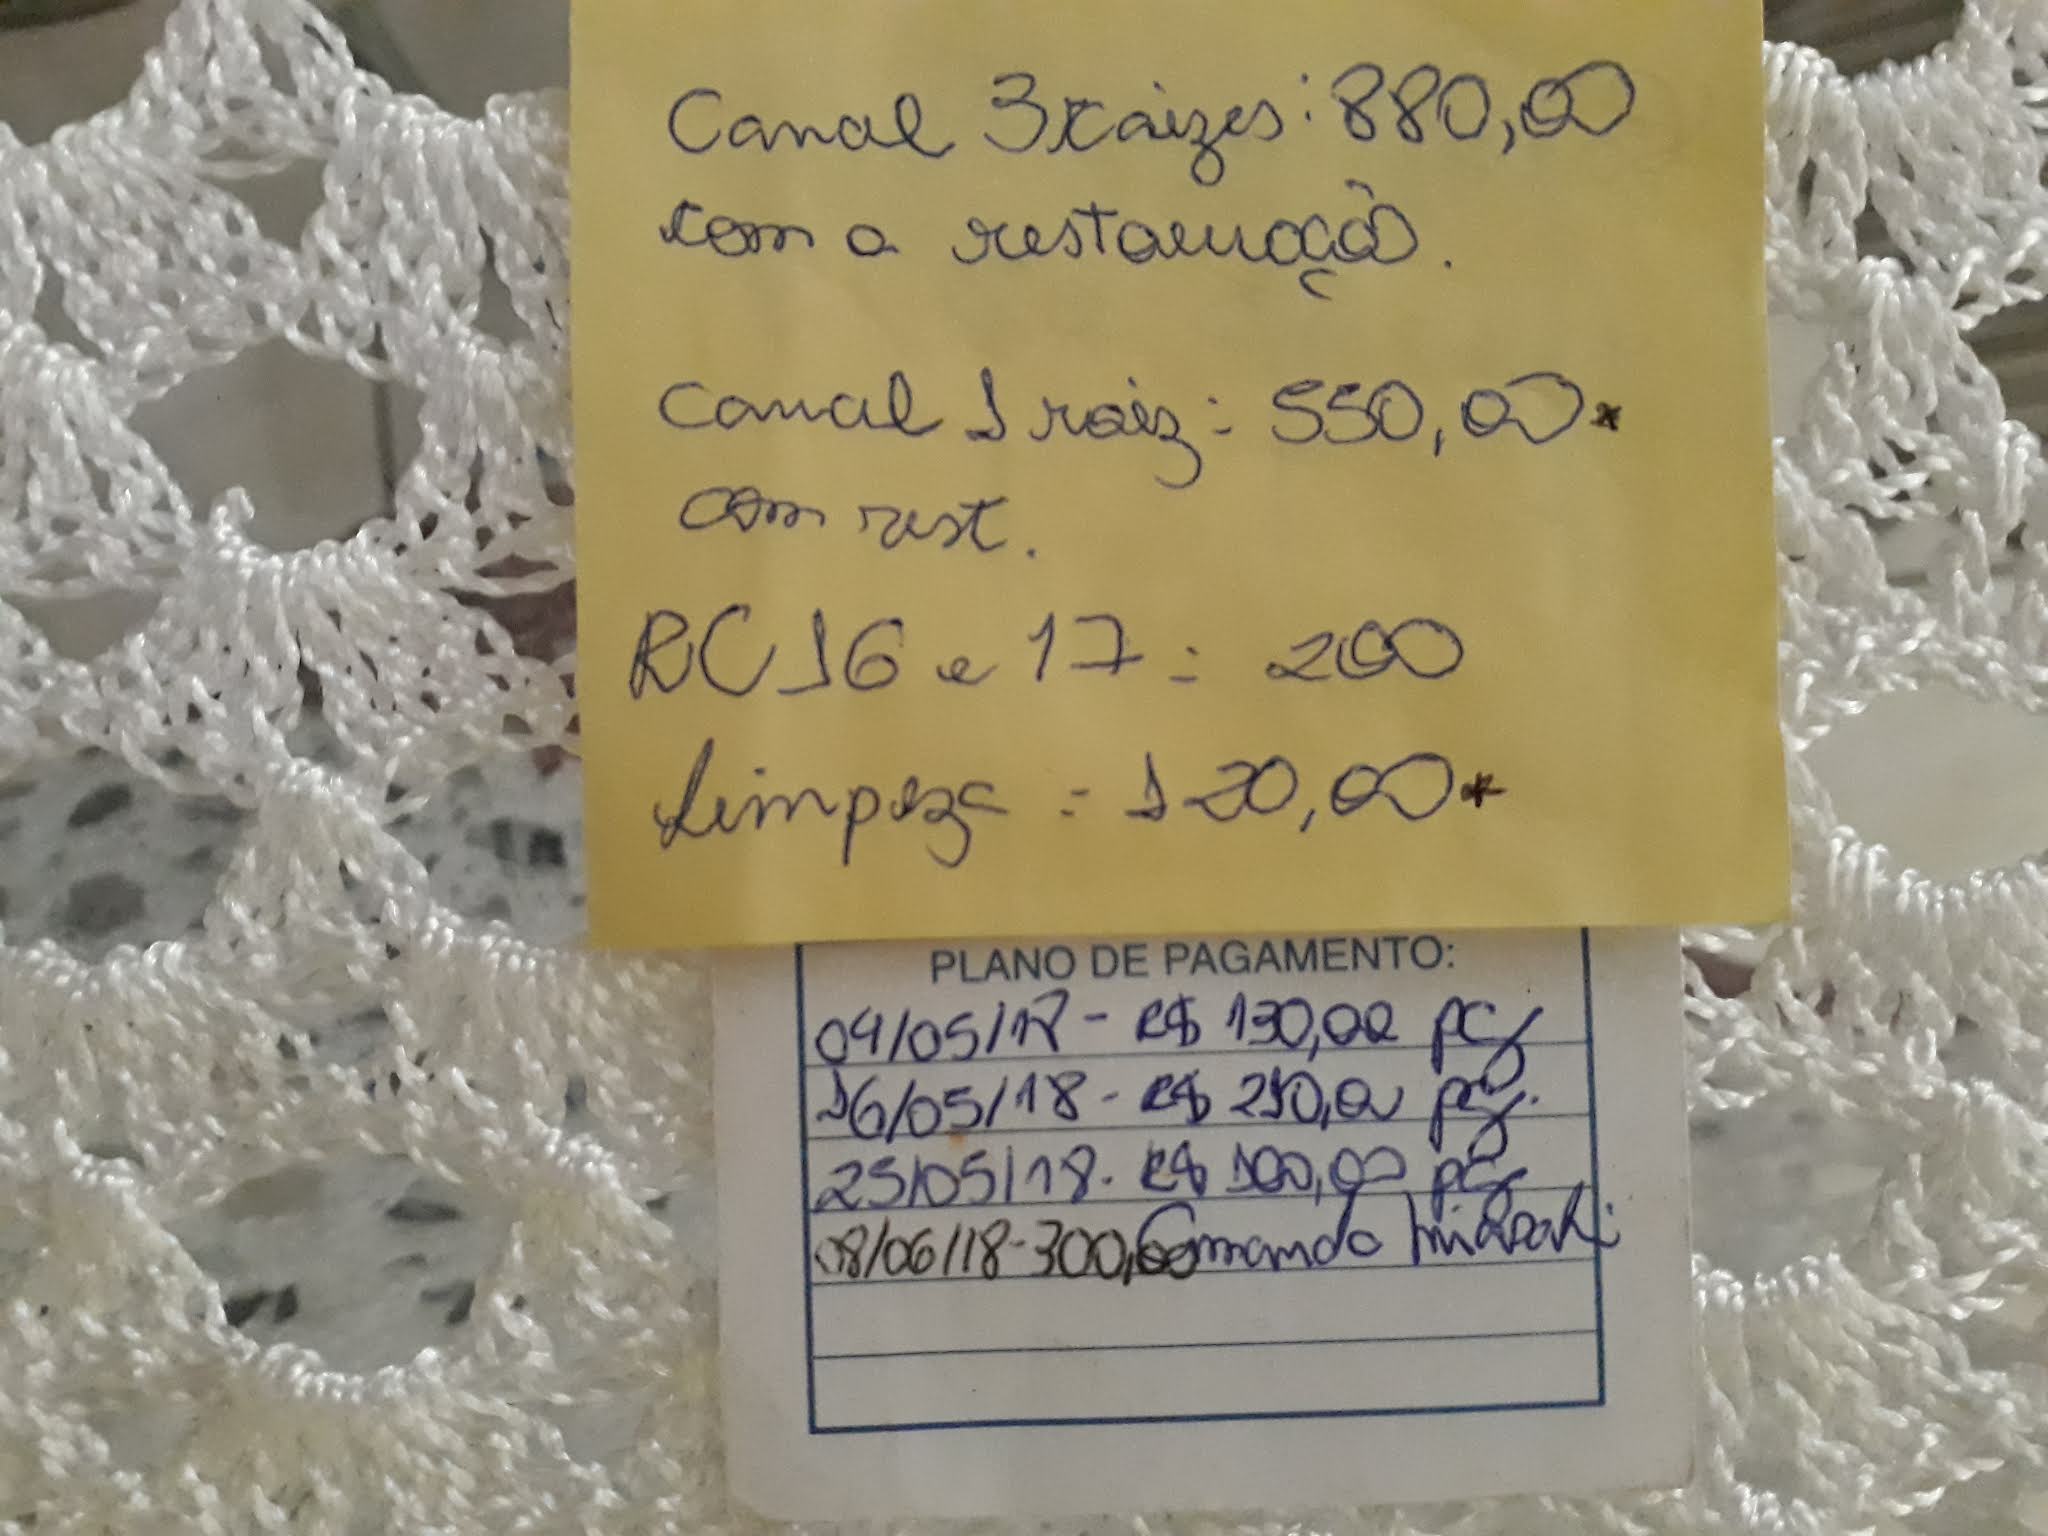 Canal 3 raizes: 880,00
com a restauração.
Canal 1 raiz: 550,00*
com rest.
RC 16 e 17 = 200
Limpeza = 120,00*
PLANO DE PAGAMENTO:
04/05/18 - R$ 130,00 pg
16/05/18 - R$ 250,00 pg.
25/05/18. R$ 100,00 pg
08/06/18-300,00